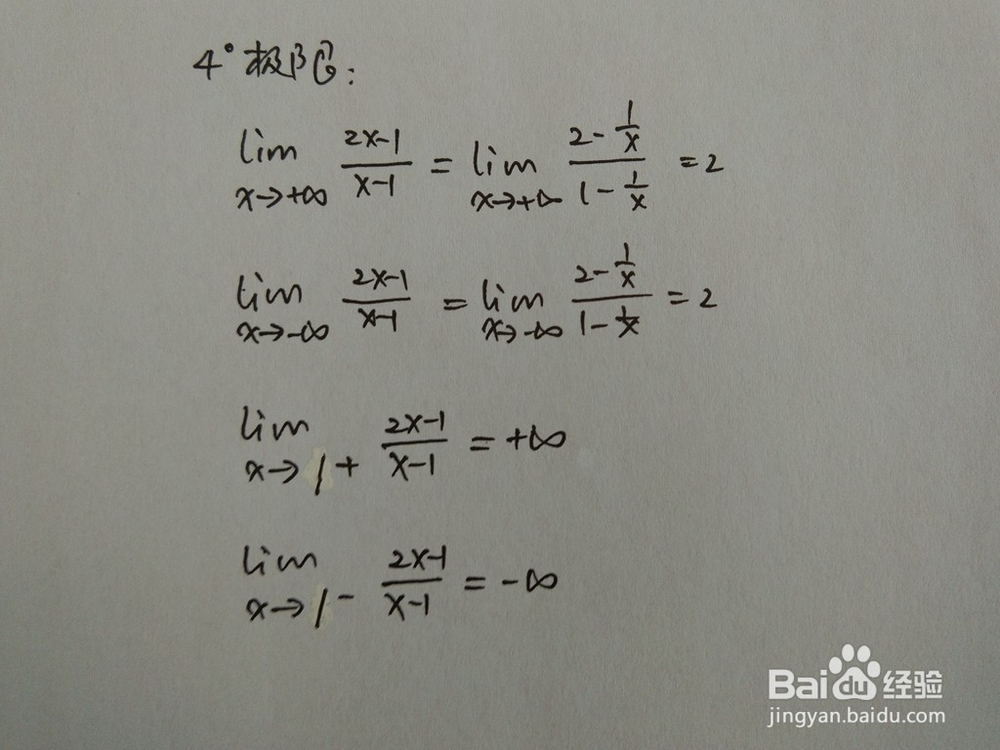 4° 极限:
lim x→+∞ (2x-1)/(x-1) = lim x→+∞ (2-1/x)/(1-1/x) = 2
lim x→-∞ (2x-1)/(x-1) = lim x→-∞ (2-1/x)/(1-1/x) = 2
lim x→1+ (2x-1)/(x-1) = +∞
lim x→1- (2x-1)/(x-1) = -∞
Baidu经验
jingyan.baidu.com